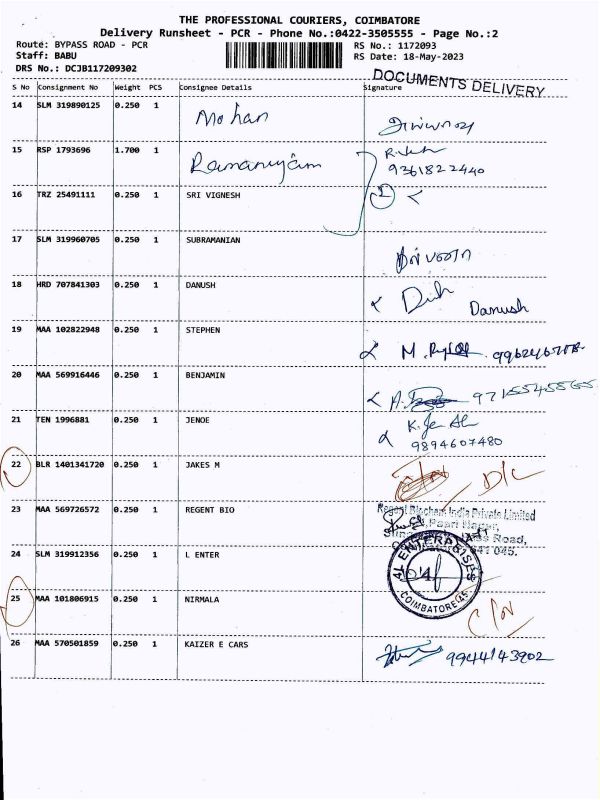 THE PROFESSIONAL COURIERS, COIMBATORE
Delivery Runsheet - PCR - Phone No.:0422-3505555 - Page No.:2
Route: BYPASS ROAD - PCR RS No.: 1172093
Staff: BABU RS Date: 18-May-2023
DRS No.: DCJB117209302
DOCUMENTS DELIVERY
S No Consignment No Weight PCS Consignee Details Signature
14 SLM 319890125 0.250 1 Mohan
15 RSP 1793696 1.700 1 9361822440
16 TRZ 25491111 0.250 1 SRI VIGNESH
17 SLM 319960705 0.250 1 SUBRAMANIAN
18 HRD 707841303 0.250 1 DANUSH Danush
19 MAA 102822948 0.250 1 STEPHEN M.
20 MAA 569916446 0.250 1 BENJAMIN
21 TEN 1996881 0.250 1 JENOE
9894607480
22 BLR 1401341720 0.250 1 JAKES M D/C
23 MAA 569726572 0.250 1 REGENT BIO Regent Biochem India Private Limited
Road,
641 045.
24 SLM 319912356 0.250 1 L ENTER
ENTERPRISES
COIMBATORE-45
25 MAA 101806915 0.250 1 NIRMALA
26 MAA 570501859 0.250 1 KAIZER E CARS 9944143902